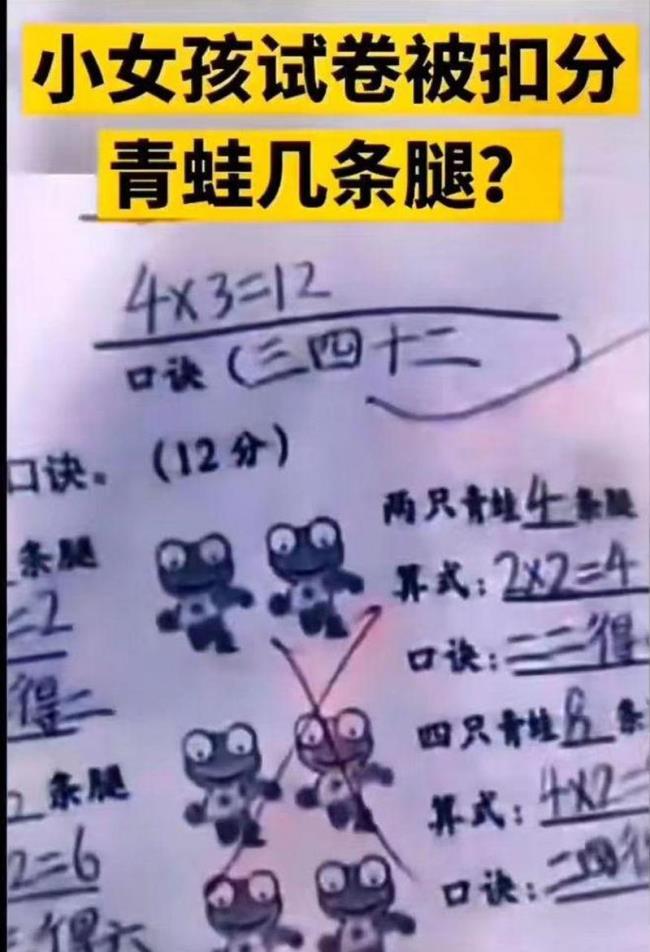 小女孩试卷被扣分
青蛙几条腿？
4×3=12
口诀（三四十二）
口诀。（12分）
条腿
=2
得二
条腿
2=6
得六
两只青蛙4条腿
算式：2×2=4
口诀：二二得
四只青蛙8条
算式：4×2=
口诀：二四得